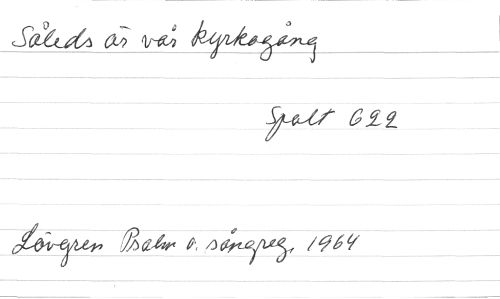 Såleds är vår kyrkogång
Spalt 622
Lövgren Psalm o. sångreg. 1964